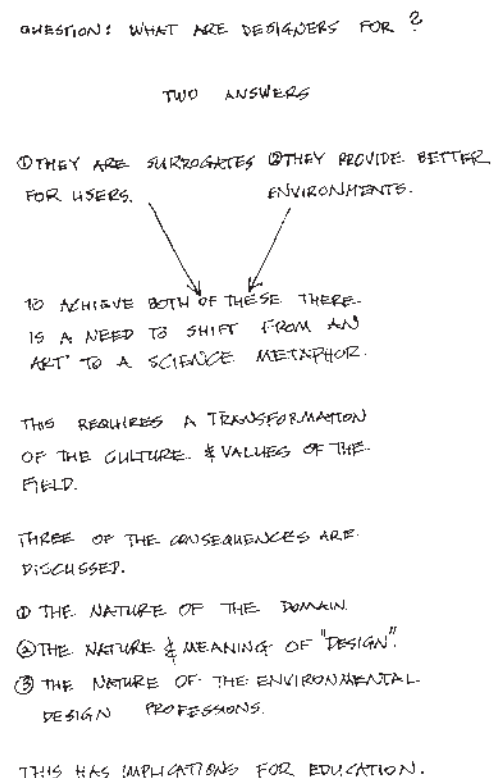 QUESTION: WHAT ARE DESIGNERS FOR ?
TWO ANSWERS
① THEY ARE SURROGATES ② THEY PROVIDE BETTER
FOR USERS. ENVIRONMENTS.
TO ACHIEVE BOTH OF THESE THERE
IS A NEED TO SHIFT FROM AN
ART TO A SCIENCE METAPHOR.
THIS REQUIRES A TRANSFORMATION
OF THE CULTURE & VALUES OF THE
FIELD.
THREE OF THE CONSEQUENCES ARE
DISCUSSED.
① THE NATURE OF THE DOMAIN
② THE NATURE & MEANING OF "DESIGN".
③ THE NATURE OF THE ENVIRONMENTAL
DESIGN PROFESSIONS.
THIS HAS IMPLICATIONS FOR EDUCATION.